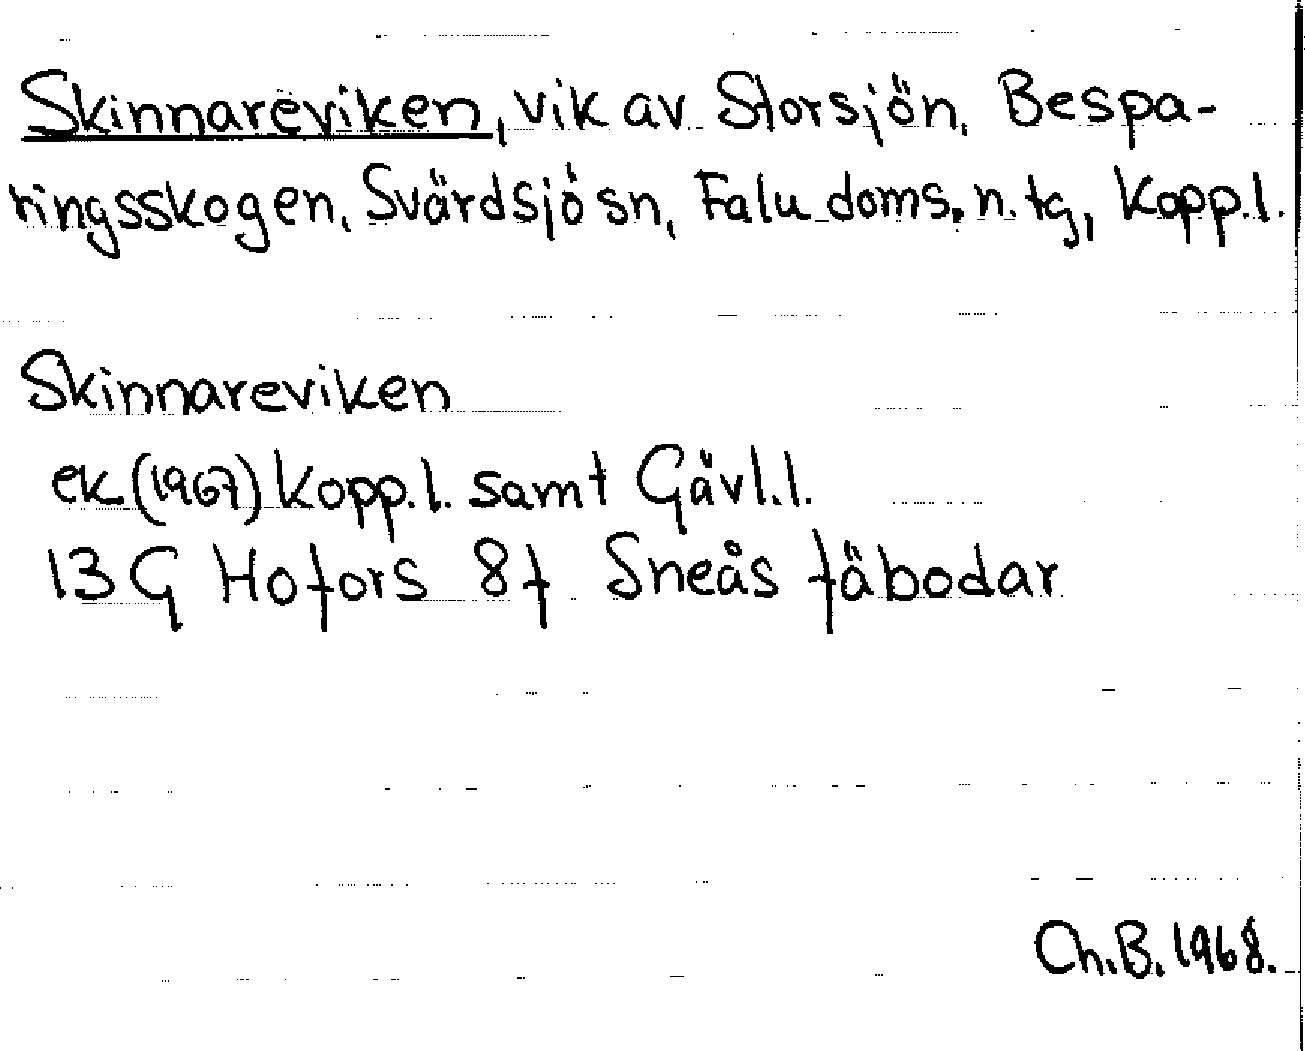 Skinnareviken, vik av Storsjön, Bespa-
ringsskogen, Svärdsjö sn, Falu doms. n. tg, Kopp.l.
Skinnareviken
ek (1967) Kopp.l. samt Gävl.l.
13 G Hofors 8f Sneås fäbodar
Ch.B. 1968.